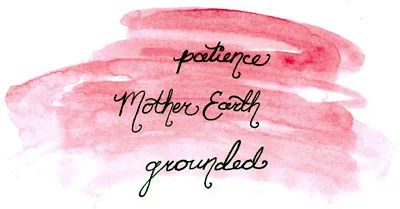 patience
Mother Earth
grounded